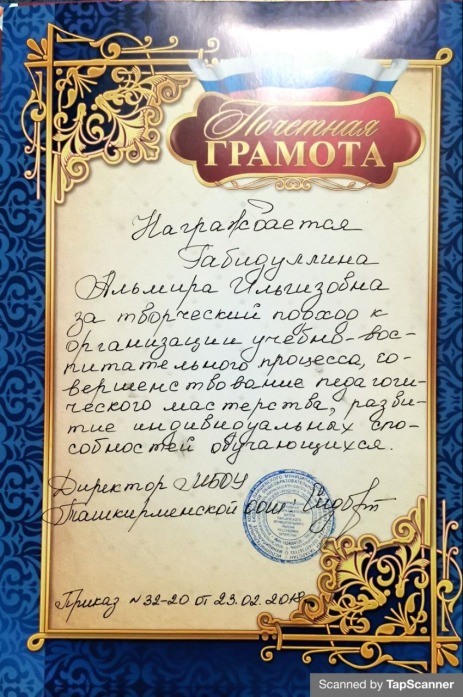 Почетная
ГРАМОТА
Награждается
Габидуллина
Альмира Ильгизовна
за творческий подход к
организации учебно-вос-
питательного процесса, со-
вершенствование педагоги-
ческого мастерства, разви-
тие индивидуальных спо-
собностей обучающихся.
Директор МБОУ
Ташкирменской сош:
Приказ № 32-20 от 23.02.2018
Scanned by TapScanner